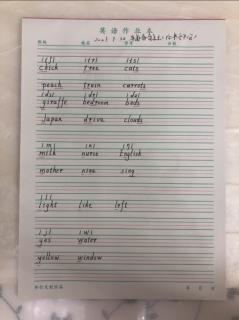 英语作业本
班级 姓名 学号 日期
2021.9.30
[tʃ] [tr] [ts]
chick tree cats
peach train carrots
[dʒ] [dr] [dz]
giraffe bedroom beds
Japan drive clouds
[m] [n] [ŋ]
milk nurse English
mother nine sing
[l]
light like left
[j] [w]
yes water
yellow window
年 月 日